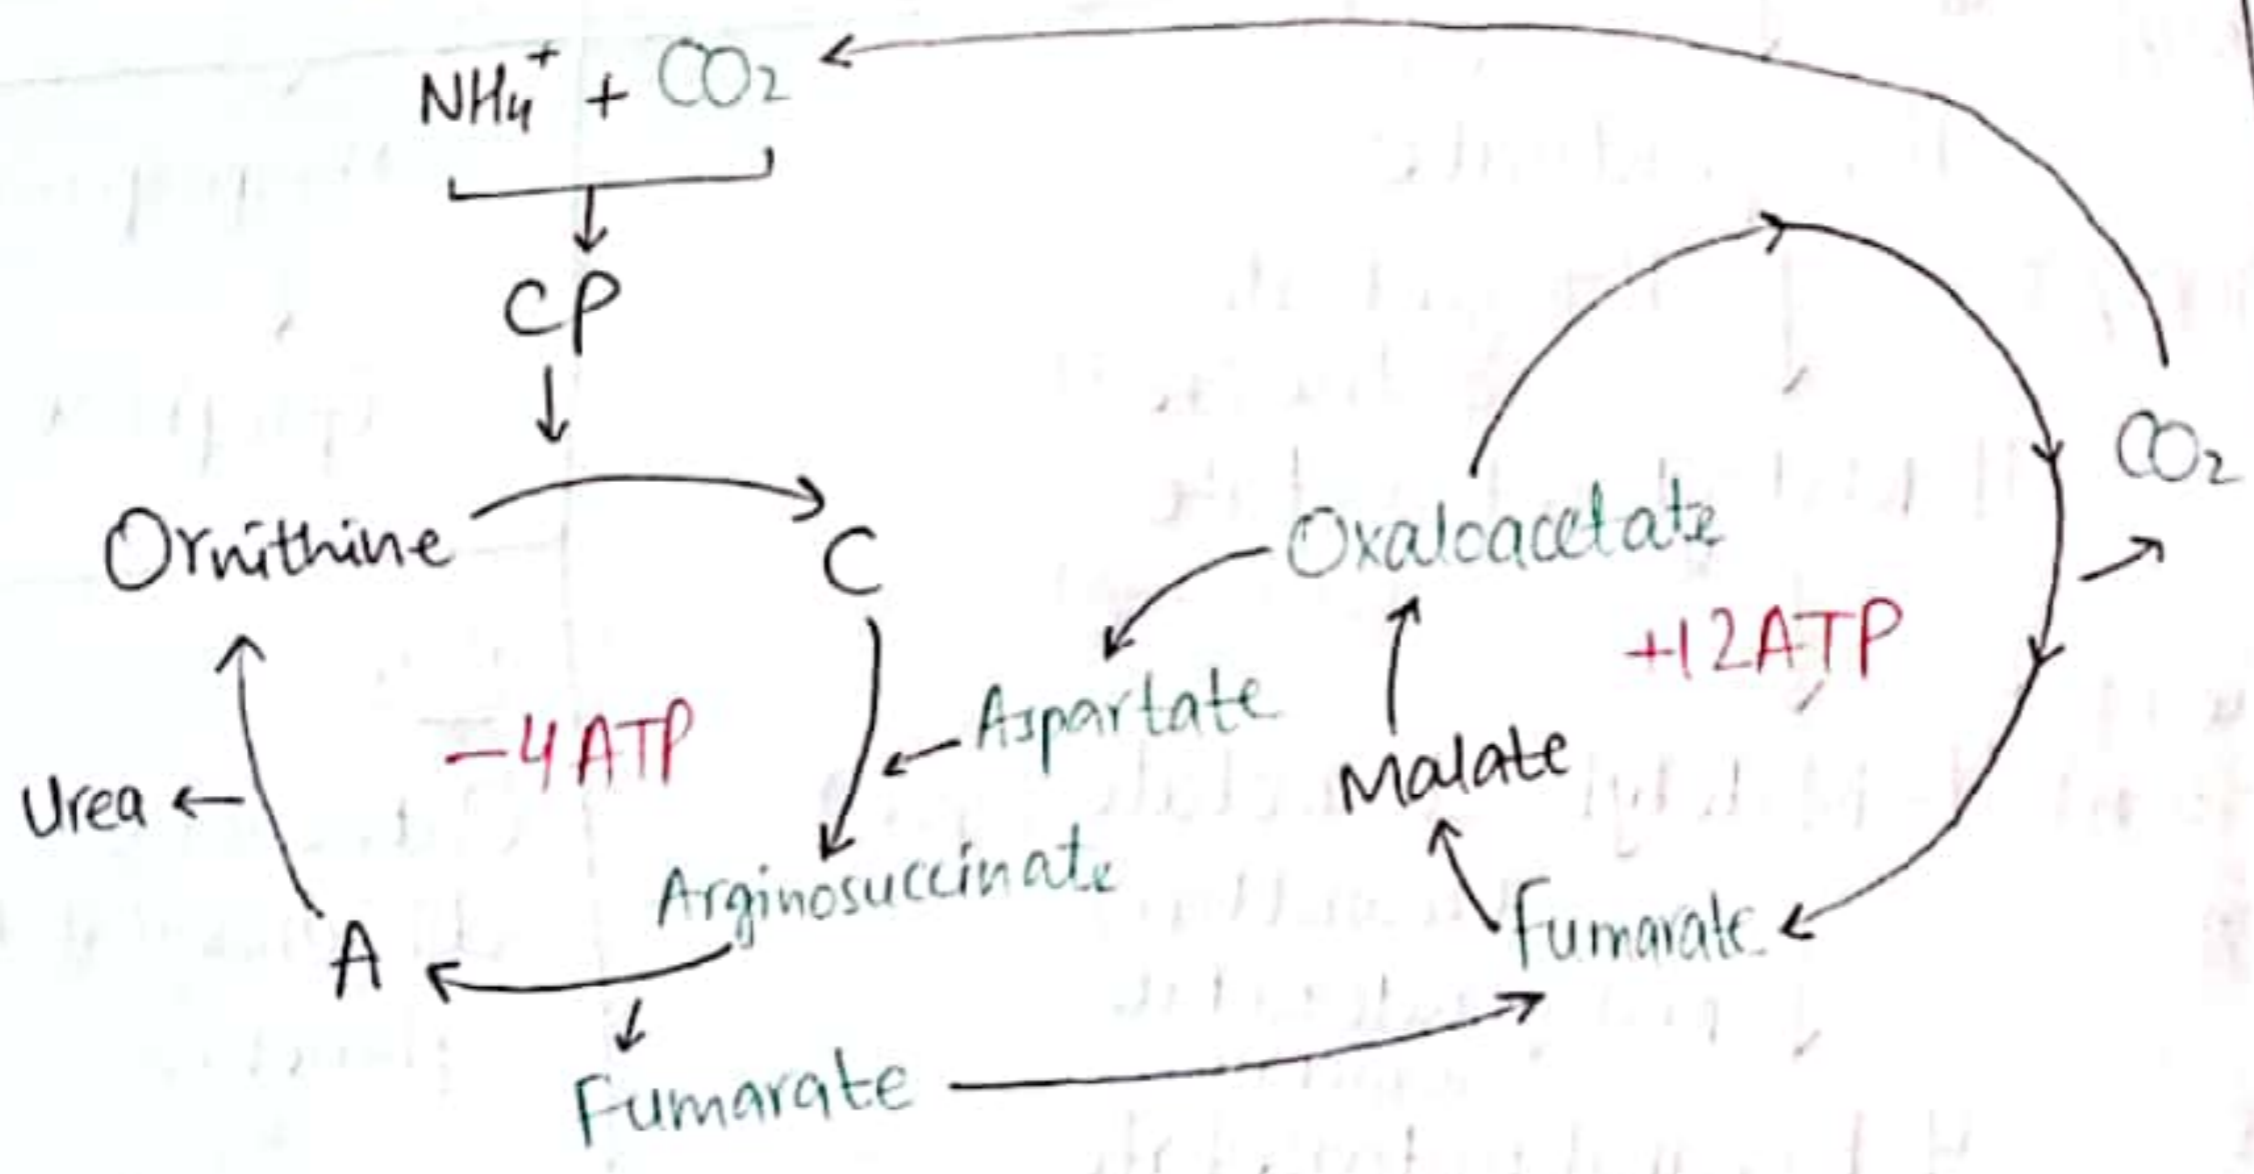 NH₄⁺ + CO₂
CP
CO₂
Ornithine
C
Oxaloacetate
+12ATP
Aspartate
-4ATP
Malate
Urea
Arginosuccinate
A
Fumarate
Fumarate